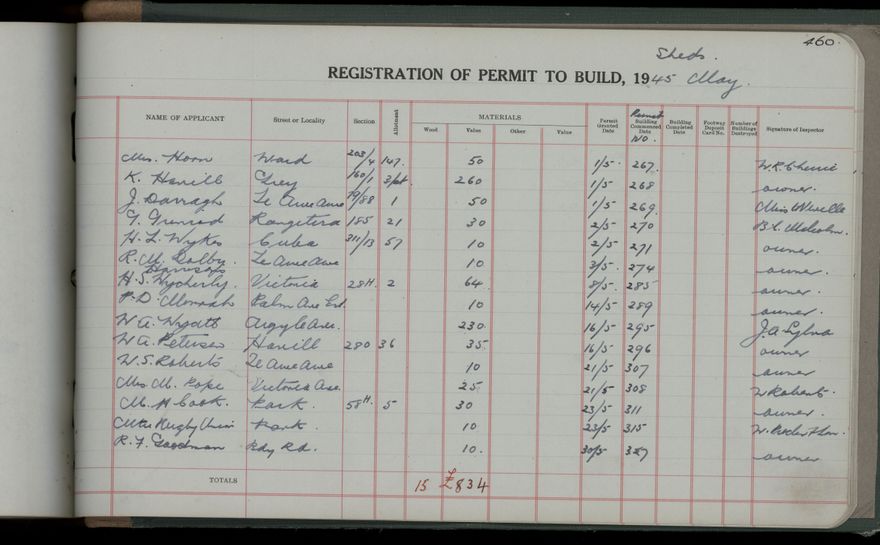 460.
Sheds.
REGISTRATION OF PERMIT TO BUILD, 1945 May.
NAME OF APPLICANT Street or Locality Section Allotment MATERIALS Wood Value Other Value Permit Granted Date Permit Building Commenced Date No. Building Completed Date Footway Deposit Card No. Number of Buildings Destroyed Signature of Inspector
Mrs. Horn Ward 203/4 147. 50 1/5. 267. W.R.
K. Havill Grey 160/1 3/pt. 260 1/5 268 owner.
J. Darragh Te Awe Awe 79/88 1 50 1/5 269. Miss
Rangitira 185 21 30 2/5 270 B.L. Malcolm.
H. L. Wykes Cuba 311/13 57 10 2/5 271 owner.
R. M. Colby. Te Awe Awe 10 3/5. 274 owner.
Harrison
H. S. Wycherly. Victoria 28H. 2 64. 8/5. 285 owner.
P. D. Palm Ave Ext. 10 14/5 289 owner.
W. A. Wyatt Argyle Ave. 230 16/5 295 J. A.
W. A. Peterson Havill 280 36 35. 16/5 296 owner
W. S. Roberts Te Awe Awe 10 21/5 307 owner
Mrs. M. Pope Victoria Ave. 25 21/5 308 W Roberts.
M. H Cook. Park. 58H. 5 30 23/5 311 owner.
Rugby Union Park. 10 23/5 315 W.
R. F. Goodman Rdy Rd. 10. 30/5 327 owner
TOTALS 15 £834